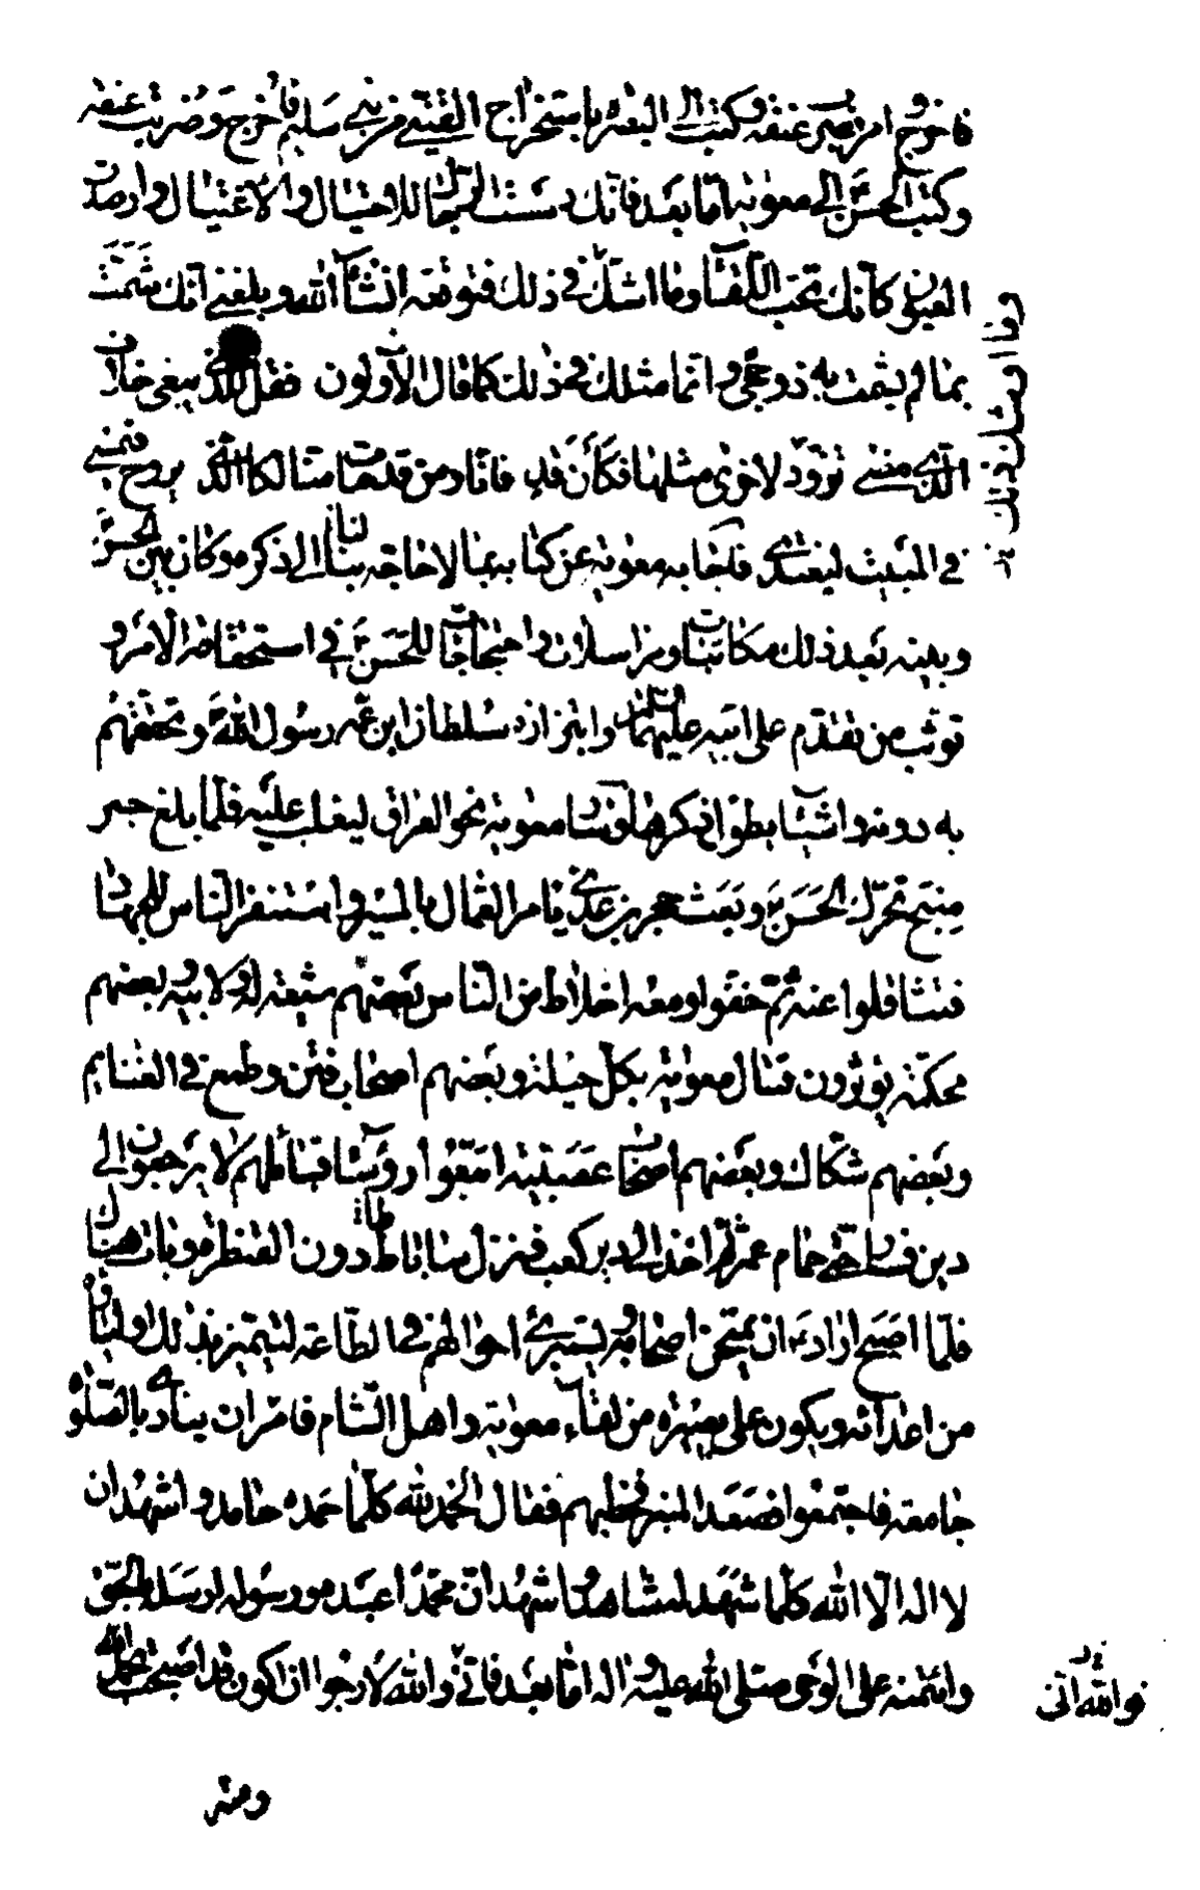 فاخرج وامر بضرب عنقه وكتب الى البصرة باستخراج القيني من بني سليم فاخرج وضربت عنقه
وكتب الحسن ع الى معوية اما بعد فانك دسست الرجال للاحتيال والاغتيال وارصدت
العيون كانك تحب اللقاء وما اشك في ذلك فتوقعه انشاء الله وبلغني انك شمت
بما لم يشمت به ذو حجى وانما مثلك في ذلك كما قال الاولون فقل للذي يبغى خلاف
الذي مضى تزود لاخرى مثلها فكان قد فانا ومن قد مات منا لكالذي يروح فيمسي
في المبيت ليغتدي فاجابه معوية عن كتابه بما لا حاجة بنا الى ذكره وكان بين الحسن ع
وبينه بعد ذلك مكاتبات ومراسلات واحتجاجات للحسن ع في استحقاقه الامر و
توثب من تقدم على ابيه عليهما السلام وابتزازه سلطان ابن عمه رسول الله ص وتحققهم
به دونه واشياء يطول ذكرها وسار معوية نحو العراق ليغلب عليه فلما بلغ جسر
منبج تحرك الحسن ع وبعث حجر بن عدي يامر العمال بالمسير واستنفر الناس للجهاد
فتثاقلوا عنه ثم خفوا ومعه اخلاط من الناس بعضهم شيعة له ولابيه وبعضهم
محكمة يؤثرون قتال معوية بكل حيلة وبعضهم اصحاب فتن وطمع في الغنايم
وبعضهم شكاك وبعضهم اصحاب عصبية اتبعوا رؤساء قبائلهم لا يرجعون الى
دين فسار حتى اتى حمام عمر ثم اخذ الى دير كعب فنزل ساباط دون القنطرة وبات هناك
فلما اصبح اراد ع ان يمتحن اصحابه ويستبرئ احوالهم في الطاعة ليتميز بذلك اولياؤه
من اعدائه ويكون على بصيرة من لقاء معوية واهل الشام فامر ان ينادى بالصلوة
جامعة فاجتمعوا فصعد المنبر فخطبهم فقال الحمد لله كلما حمده حامد واشهد ان
لا اله الا الله كلما شهد له شاهد واشهد ان محمدا عبده ورسوله ارسله بالحق
وائتمنه على الوحى صلى الله عليه واله اما بعد فاني والله لارجوا ان اكون قد اصبحت بحمد الله
ومنه
وما اوشك ذلك
فوالله اني